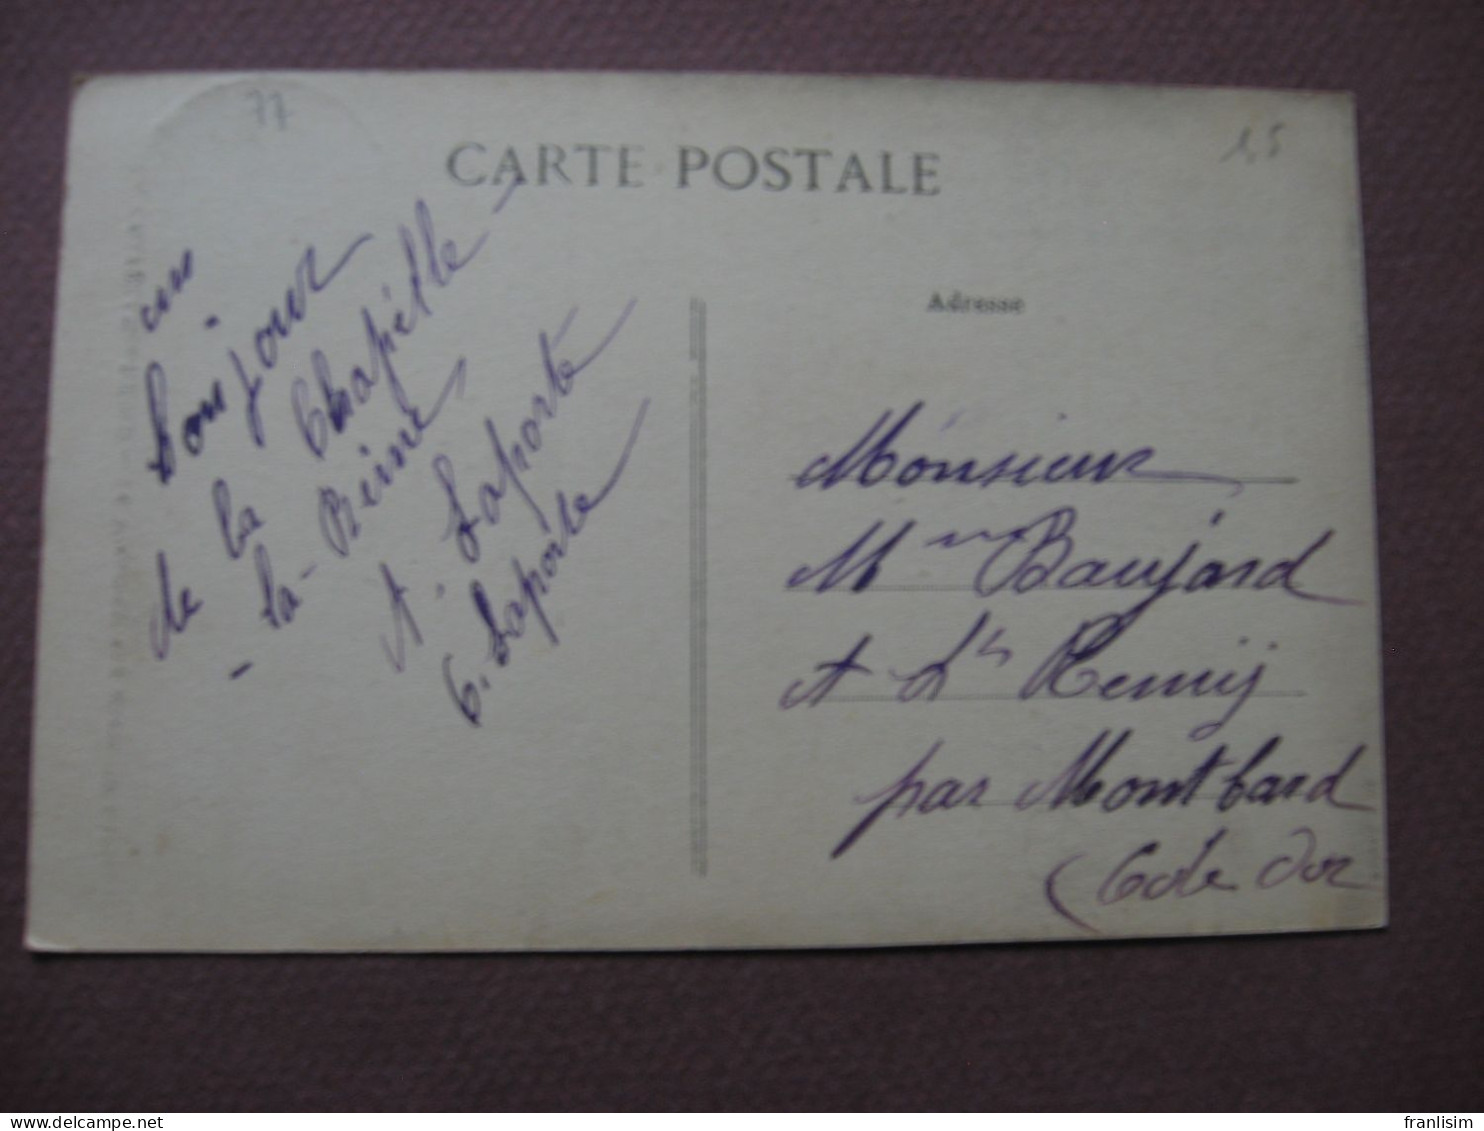 77
CARTE POSTALE
1,5
un
Bonjour
de la Chapelle
- la - Reine
A. Laporte
G. Laporte
Adresse
Monsieur
Mr Baujard
A St Remy
par Montbard
(Cote d'or
franlisim